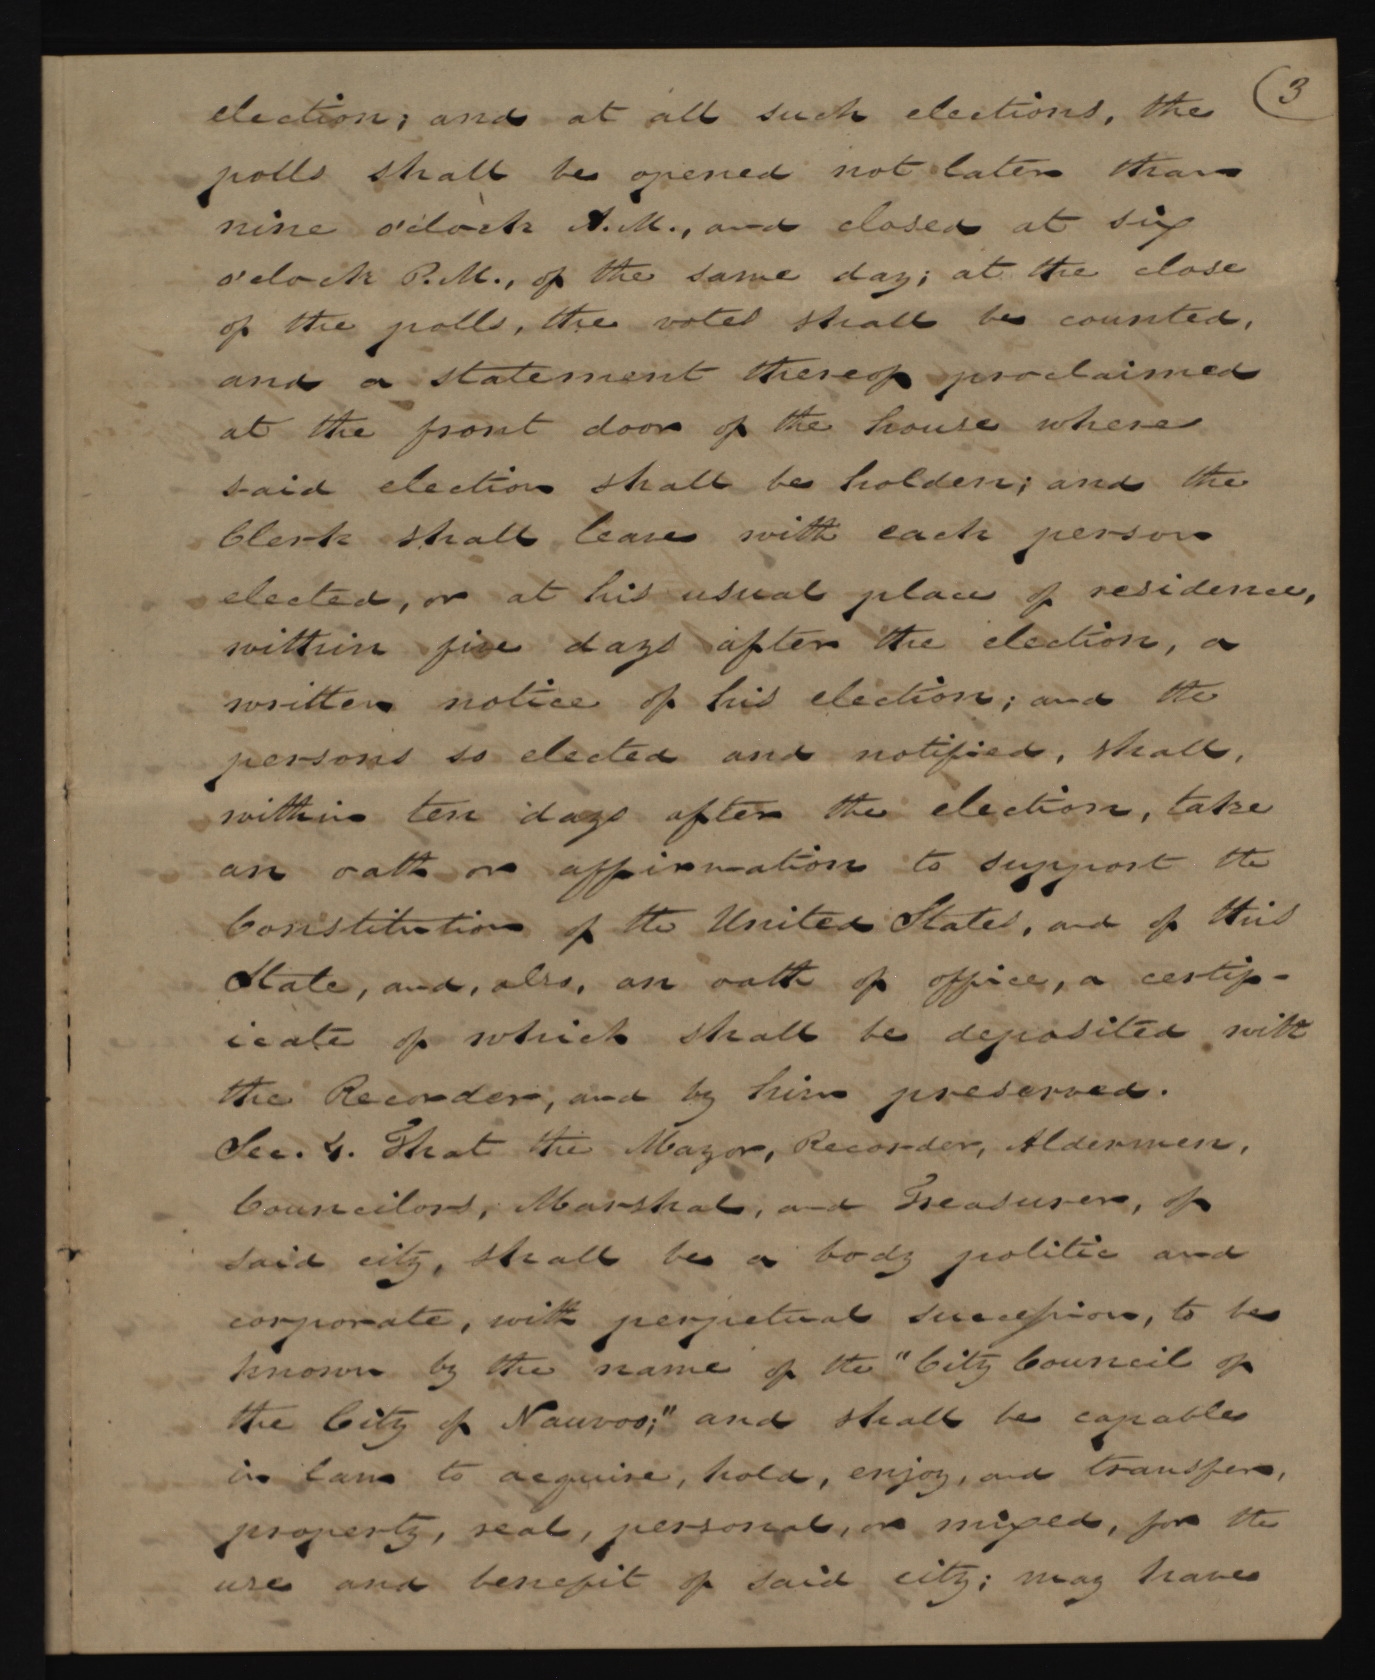 3
election; and at all such elections, the
polls shall be opened not later than
nine o'clock A.M., and closed at six
o'clock P.M., of the same day; at the close
of the polls, the votes shall be counted,
and a statement thereof proclaimed
at the front door of the house where
said election shall be holden; and the
Clerk shall leave with each person
elected, or at his usual place of residence,
within five days after the election, a
written notice of his election; and the
persons so elected and notified, shall,
within ten days after the election, take
an oath or affirmation to support the
Constitution of the United States, and of this
State, and, also, an oath of office, a certif-
icate of which shall be deposited with
the Recorder, and by him preserved.
Sec. 4. That the Mayor, Recorder, Aldermen,
Councilors, Marshal, and Treasurer, of
said city, shall be a body politic and
corporate, with perpetual succession, to be
known by the name of the "City Council of
the City of Nauvoo;" and shall be capable
in law to acquire, hold, enjoy, and transfer,
property, real, personal, or mixed, for the
use and benefit of said city; may have